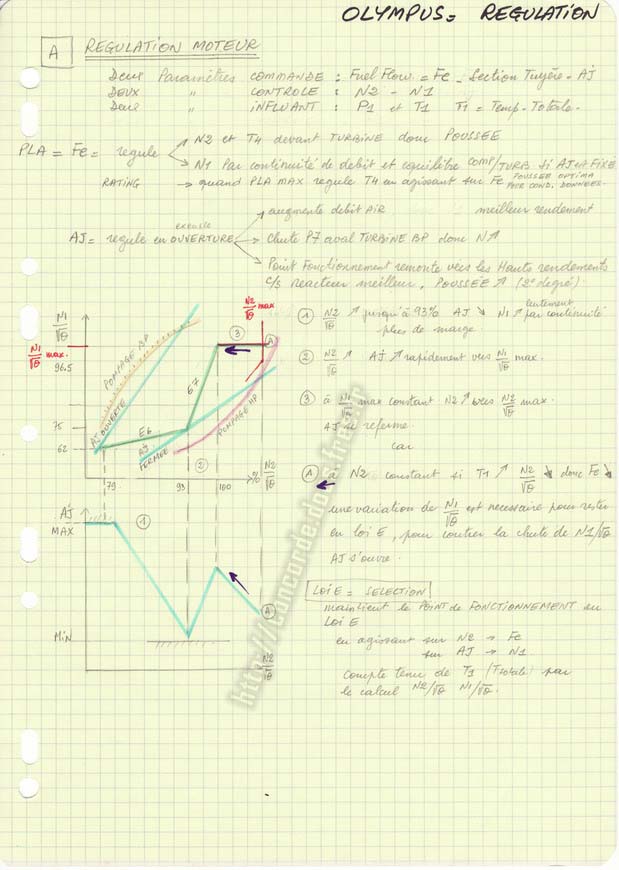 OLYMPUS = REGULATION
A REGULATION MOTEUR
Deux Paramètres COMMANDE : Fuel Flow = Fe - Section Tuyère - AJ
DEUX " CONTROLE : N2 - N1
Deux " INFLUANT : P1 et T1 T1 = Temp-Totale
PLA = Fe = regule
N2 et T4 devant TURBINE donc POUSSEE
N1 Par continuité de debit et equilibre COMP/TURB si AJ est FIXE
RATING → quand PLA MAX regule T4 en agissant sur Fe POUSSEE OPTIMA
POUR COND. DONNEES
AJ = regule en OUVERTURE
augmente debit AIR meilleur rendement
Chute P7 aval TURBINE BP donc N↗
Point Fonctionnement remonte vers les Hauts rendements
c/s reacteur meilleur, POUSSEE ↗ (2e degré)
N1/√θ
N1/√θ max.
96.5
75
62
POMPAGE BP
AJ OUVERTE
E6
AJ FERMEE
67
POMPAGE HP
N2/√θ max
A
1
2
3
79
93
100
% N2/√θ
① N2/√θ ↗ jusqu'à 93% AJ ↘ N1 ↗ lentement par continuité
plus de marge.
② N2/√θ ↗ AJ ↗ rapidement vers N1/√θ max.
③ à N1/√θ max constant N2 ↗ vers N2/√θ max.
AJ se referme
car
à N2 constant si T1 ↗ N2/√θ ↘ donc Fe ↘
une variation de N1/√θ est necessaire pour rester
en loi E, pour contrer la chute de N1/√θ
AJ s'ouvre.
AJ
MAX
1
A
Min
N2/√θ
LOI E = SELECTION
maintient le POINT de FONCTIONNEMENT en
LOI E
en agissant sur N2 → Fe
sur AJ → N1.
compte tenu de T1 (Totale) par
le calcul N2/√θ N1/√θ.
http://concorde.doss.free.fr